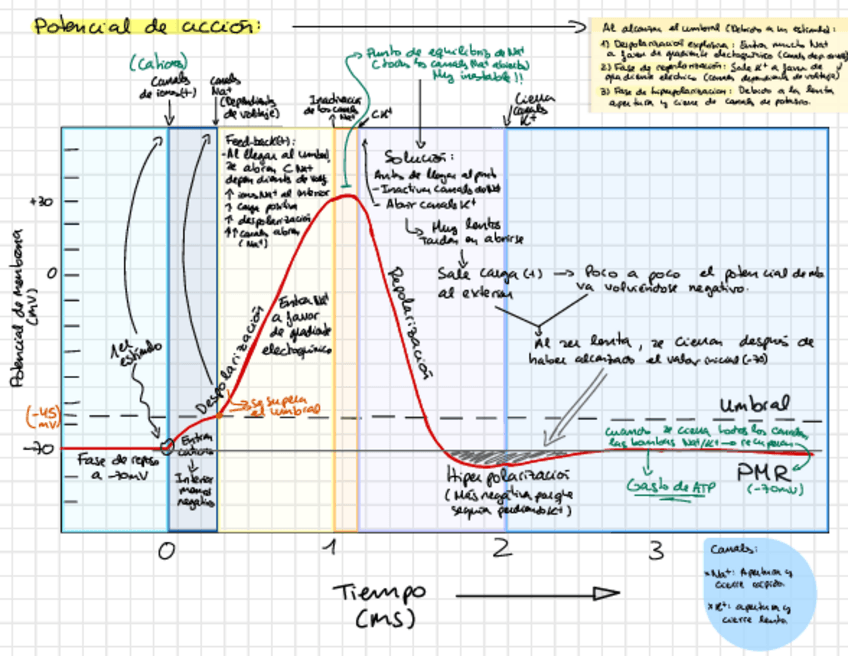 Potencial de acción:
Al alcanzar el umbral (Debido a un estímulo):
1) Despolarización explosiva: Entra mucho Na+
a favor de gradiente electroquímico (canales dependientes)
2) Fase de repolarización: Sale K+ a favor de
gradiente eléctrico (canales dependientes de voltaje)
3) Fase de hiperpolarización: Debido a la lenta
apertura y cierre de canales de potasio.
(Cationes)
Canales
de iones(+)
canales
Na+
(Dependientes
de voltaje)
Inactivación
de los canales
Na+
Punto de equilibrio de Na+
(todos los canales Na+ abiertos)
Muy inestable!!
CK+
Cierra
canales
K+
Feed-back(+):
-Al llegar al umbral
se abren C Na+
dependientes de voltaj
↑ iones Na+ al interior
↑ carga positiva
↑ despolarización
↑↑ canales abren
(Na+)
Solución:
Antes de llegar al punto
- Inactivan canales de Na+
- Abrir canales K+
Muy lentos
Tardan en abrirse
Sale carga (+) → Poco a poco el potencial de mb
al exterior
va volviéndose negativo.
Al ser lenta, se cierran después de
haber alcanzado el valor inicial (-70)
Potencial de membrana
(mV)
+30
0
(-45)
mV)
-70
1er
estímulo
Despolarización
Entra Na+
a favor
de gradiente
electroquímico
Repolarización
Se supera
el umbral
Umbral
Fase de reposo
a -70mV
Entran
cationes
Interior
menos
negativo
Hiperpolarización
(Más negativa porque
seguían perdiendo K+)
cuando se cierran todos los canales
las bombas Na+/K+ → recuperan
Gasto de ATP
PMR
(-70mV)
0 1 2 3
Tiempo
(ms)
Canales:
*Na+: Apertura y
cierre rápido.
*K+: apertura y
cierre lento.